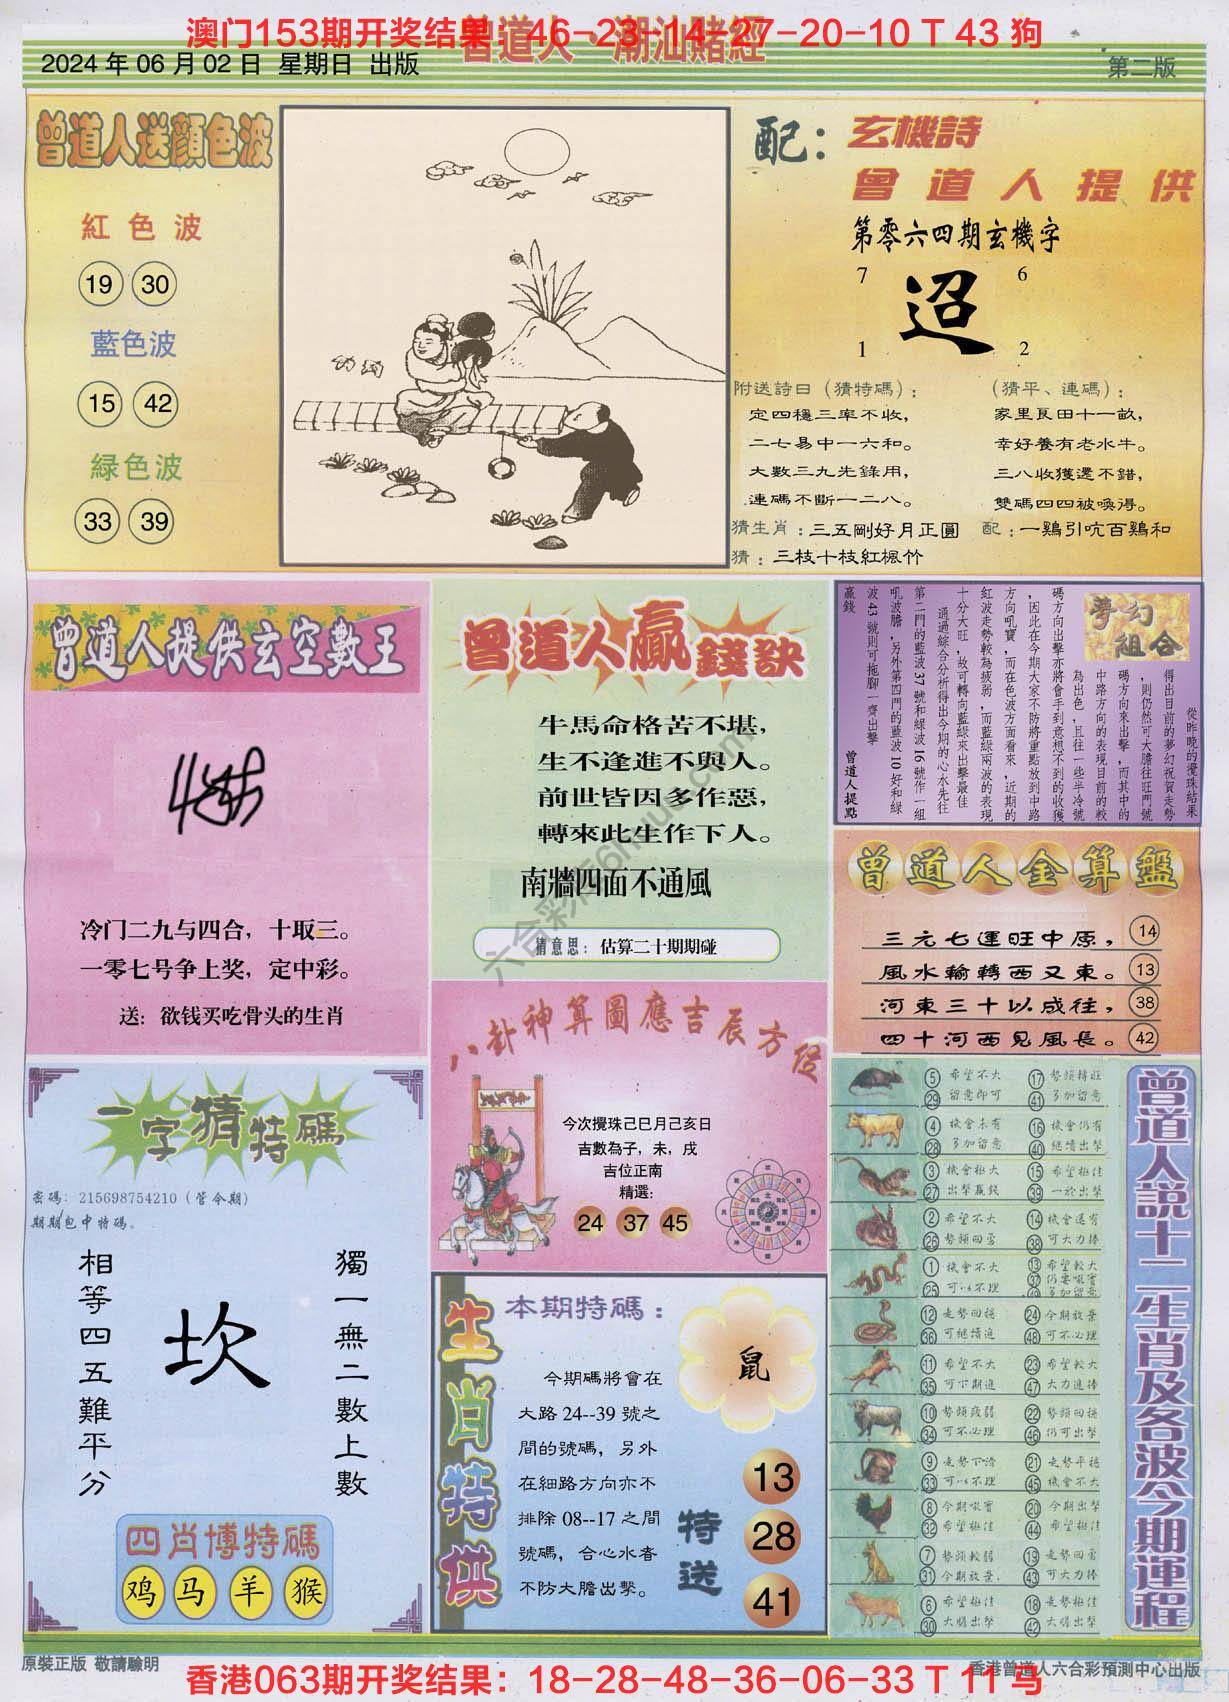 澳门153期开奖结果：46-23-14-27-20-10 T 43 狗
曾道人·潮汕賭經
2024 年 06 月 02 日 星期日 出版
第二版
曾道人送顏色波
紅色波
19 30
藍色波
15 42
緑色波
33 39
配：玄機詩
曾道人提供
第零六四期玄機字
7 6
迢
1 2
附送詩曰（猜特碼）：
定四穩三率不收，
二七易中一六和。
大數三九先錄用，
連碼不斷一二八。
（猜平、連碼）：
家里良田十一畝，
幸好養有老水牛。
三八收獲還不錯，
雙碼四四被喚得。
猜生肖：三五剛好月正圓 配：一鷄引吭百鷄和
猜：三枝十枝紅楓竹
曾道人提供玄空數王
冷门二九与四合，十取三。
一零七号争上奖，定中彩。
送：欲钱买吃骨头的生肖
曾道人贏錢訣
牛馬命格苦不堪，
生不逢進不與人。
前世皆因多作惡，
轉來此生作下人。
南牆四面不通風
猜意思：估算二十期期碰
夢幻組合
從昨晚的攪珠結果
得出目前的夢幻祝賀走勢
，則仍然可大膽往旺門號
碼方向來出擊，而其中的
中路方向的表現目前的較
為出色，且往一些半冷號
碼方向出擊亦將會手到意想不到的收獲
，因此在今期大家不防將重點放到中路
方向吼寶，而在色波方面看來，近期的
紅波走勢較為疲弱，而藍綠兩波的表現
十分大旺，故可轉向藍綠來出擊最佳
通過綜合分析得出今期的心水先往
第二門的藍波 37 號和綠波 16 號作一組
吼波膽，另外第四門的藍波 10 好和綠
波 43 號則可拖腳一齊出擊
贏錢
曾道人提點
曾道人金算盤
三元七運旺中原， 14
風水輪轉西又東。 13
河東三十以成往， 38
四十河西見風長。 42
八卦神算圖應吉辰方位
今次攪珠己巳月己亥日
吉數為子，未，戌
吉位正南
精選：
24 37 45
一字猜特碼
密碼：215698754210（管今期）
期期包中特碼。
相等四五難平分
坎
獨一無二數上數
四肖博特碼
鸡 马 羊 猴
生肖特供
本期特碼：
鼠
今期碼將會在
大路 24--39 號之
間的號碼，另外
在細路方向亦不
排除 08--17 之間
號碼，合心水者
不防大膽出擊。
特送
13
28
41
曾道人説十二生肖及各波今期運程
5 29 希望不大 留意即可 17 41 勢頭轉旺 多加留意
4 28 機會未有 多加留意 16 40 機會仍有 繼續出擊
3 27 機會極大 出擊贏錢 15 39 希望極佳 一於出擊
2 26 希望不大 勢頭回勇 14 38 機會還有 可大力捧
1 25 機會不大 可以不理 13 37 49 希望較大 仍要吼寶 多加留意
12 36 走勢回穩 可繼續追 24 48 今期放棄 可不必理
11 35 希望不大 可下期追 23 47 希望較大 大力追捧
10 34 勢頭疲弱 可不必理 22 46 勢頭回穩 仍可出擊
9 33 走勢下滑 可以不理 21 45 走勢平穩 機會不大
8 32 今期吼寶 希望極佳 20 44 今期出擊 希望極佳
7 31 勢頭較弱 今期放棄. 19 43 走勢回勇 可大力捧
6 30 希望極佳 大膽出擊 18 42 走勢極佳 大膽出擊
原裝正版 敬請驗明
香港曾道人六合彩預測中心出版
香港063期开奖结果：18-28-48-36-06-33 T 11 马